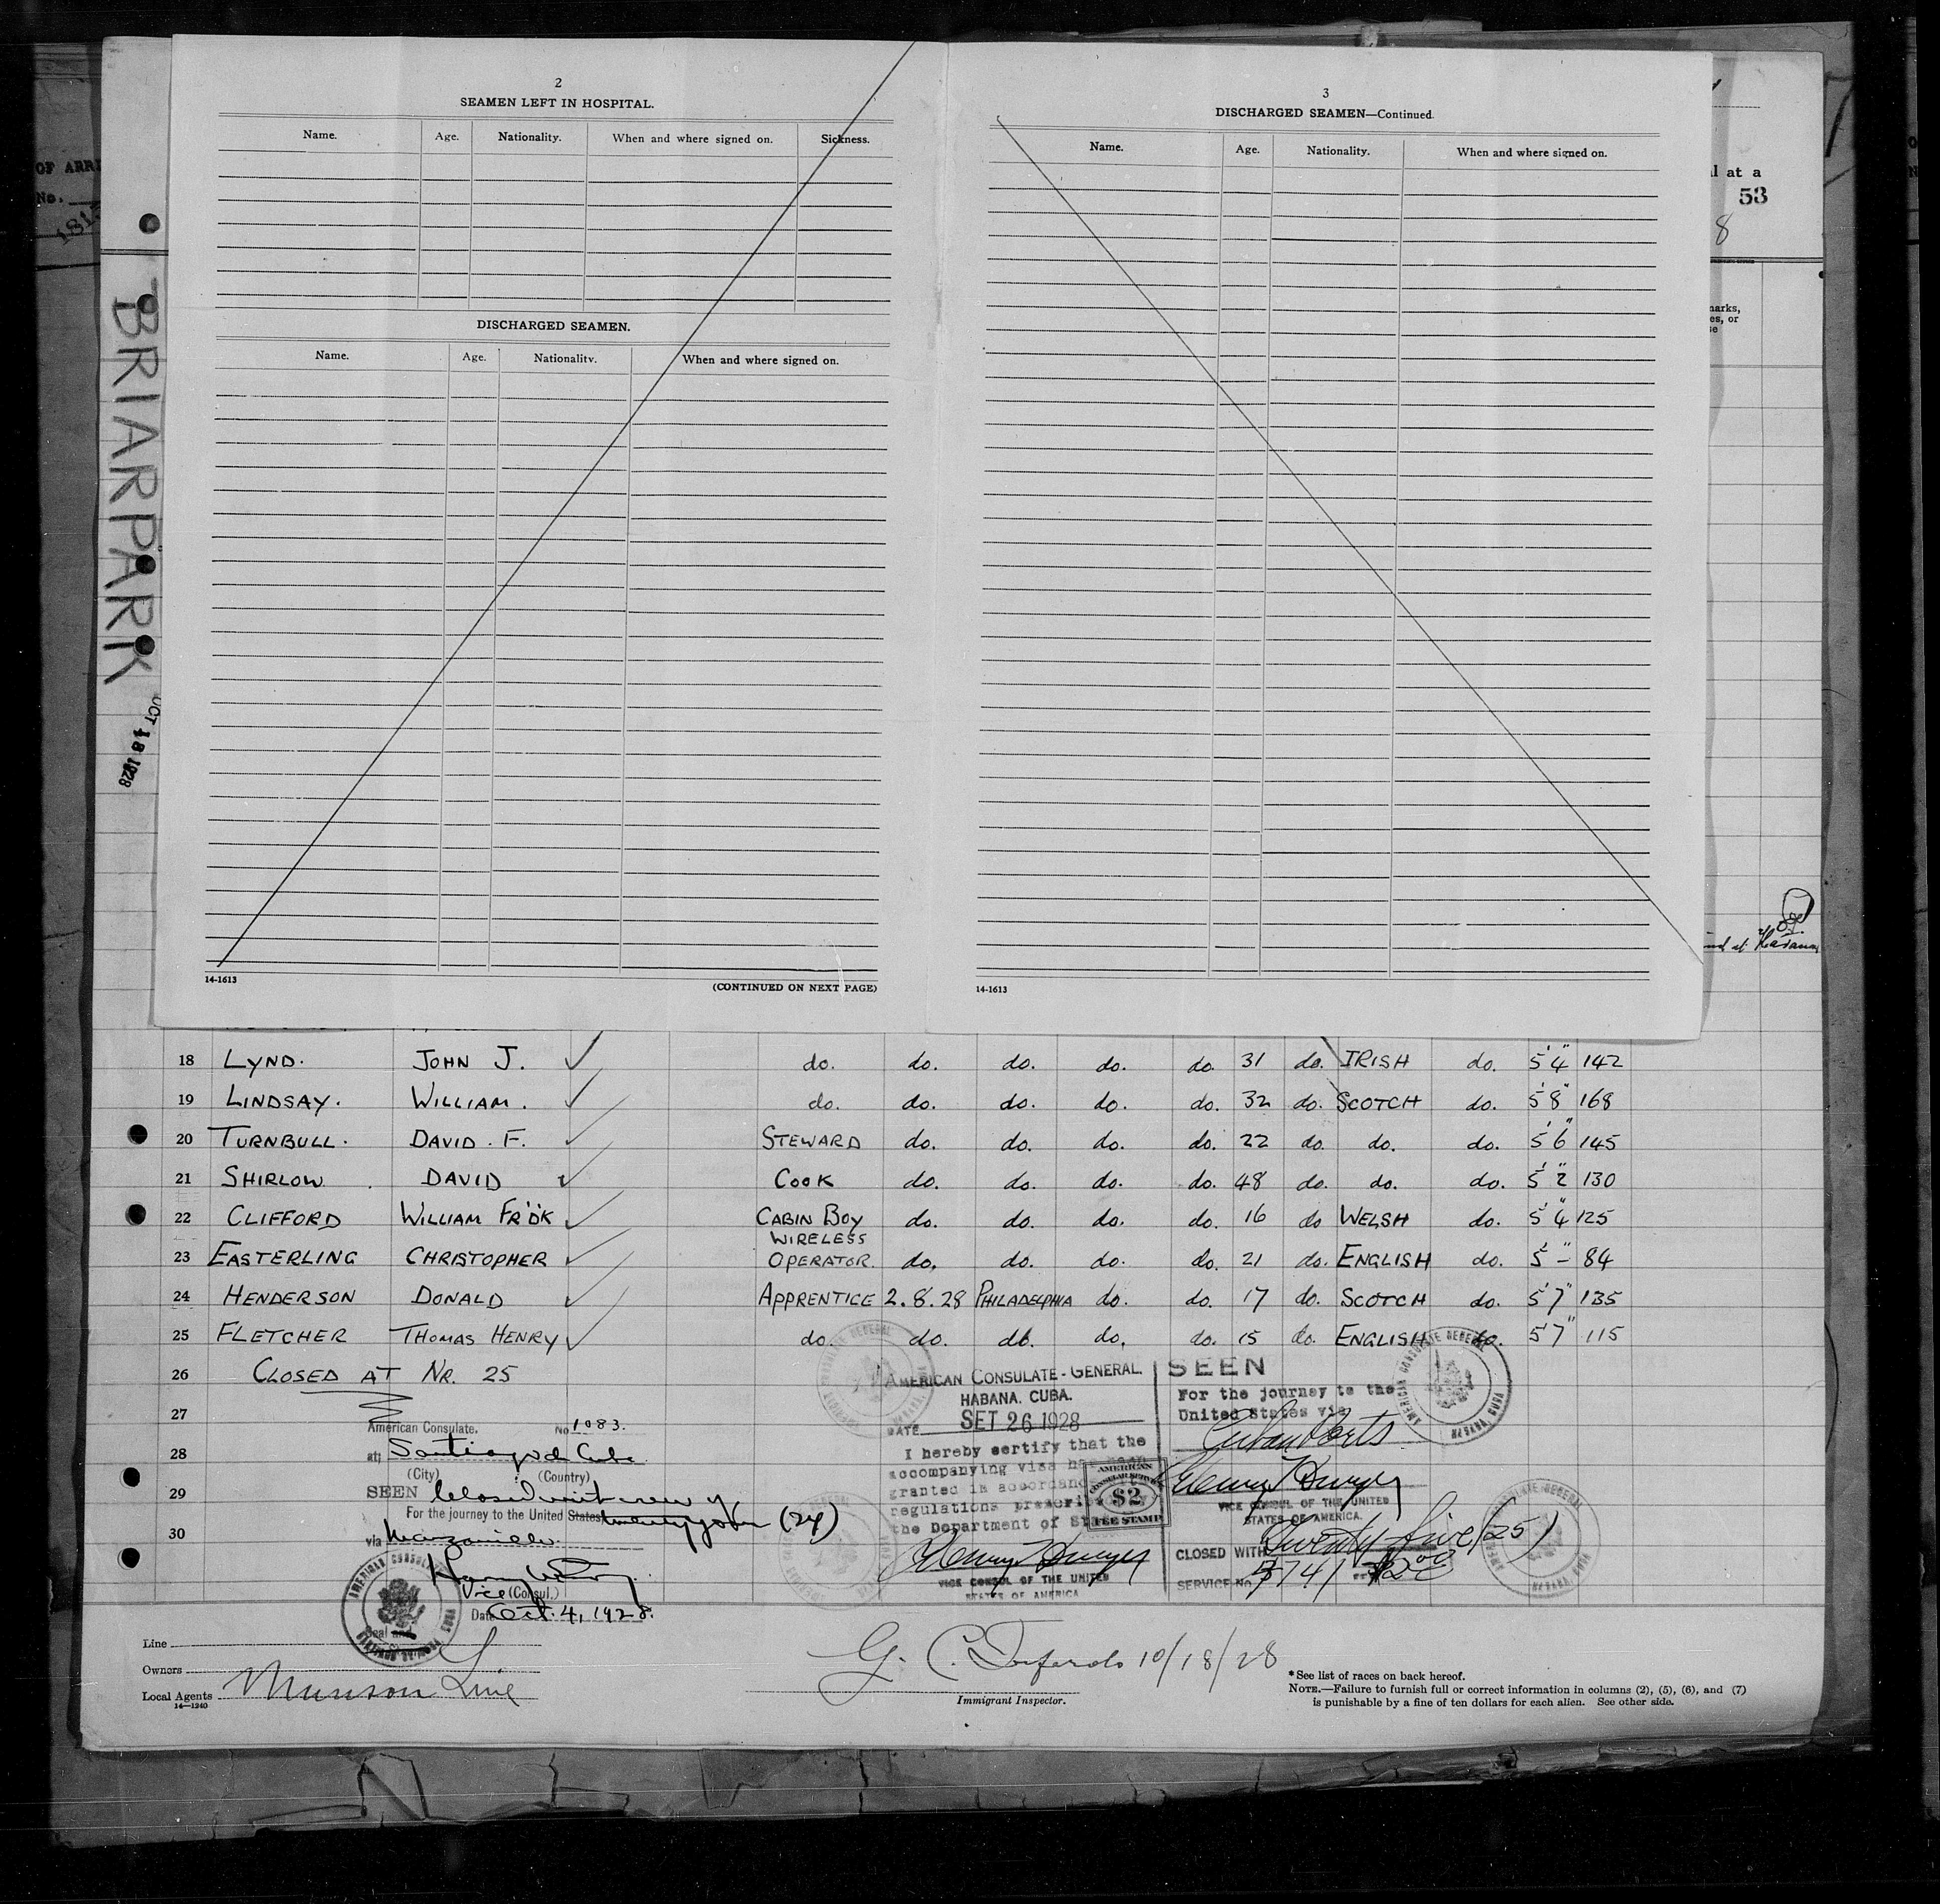 2
SEAMEN LEFT IN HOSPITAL.
Name. Age. Nationality. When and where signed on. Sickness.
DISCHARGED SEAMEN.
Name. Age. Nationality. When and where signed on.
14-1613
(CONTINUED ON NEXT PAGE)
3
DISCHARGED SEAMEN—Continued.
Name. Age. Nationality. When and where signed on.
14-1613
OF ARRI
No.
l at a
53
8
marks,
es, or
se
BRIARPARK
OCT 18 1928
at Havana
18 LYND. JOHN J. do. do. do. do. do. 31 do. IRISH do. 5'4" 142
19 LINDSAY. WILLIAM. do. do. do. do. do. 32 do. SCOTCH do. 5'8" 168
20 TURNBULL. DAVID. F. STEWARD do. do. do. do. 22 do. do. do. 5'6" 145
21 SHIRLOW. DAVID COOK do. do. do. do. 48 do. do. do. 5'2" 130
22 CLIFFORD WILLIAM FR'D'K CABIN BOY do. do. do. do. 16 do WELSH do. 5'4" 125
23 EASTERLING CHRISTOPHER WIRELESS OPERATOR. do. do. do. do. 21 do. ENGLISH do. 5'-" 84
24 HENDERSON DONALD APPRENTICE 2.8.28 PHILADELPHIA do. do. 17 do. SCOTCH do. 5'7" 135
25 FLETCHER THOMAS HENRY do. do. do. do. do. 15 do. ENGLISH do. 5'7" 115
26 CLOSED AT NR. 25
27
28
29
30
American Consulate,
No 1083.
at Santiago de Cuba
(City) (Country)
SEEN Closed with crew of
For the journey to the United States twenty four (24)
via Manzanillo.
Vice (Consul.)
Date Oct. 4, 1928.
Seal and
AMERICAN CONSULATE-GENERAL
HABANA, CUBA.
DATE SET 26 1928
I hereby certify that the
accompanying visa has been
granted in accordance
regulations prescribed
the Department of State
Henry T Dwyer
VICE CONSUL OF THE UNITED
STATES OF AMERICA
AMERICAN
CONSULAR SERVICE
$2
FEE STAMP
SEEN
For the journey to the
United States via
Cuban Ports
Henry T Dwyer
VICE CONSUL OF THE UNITED
STATES OF AMERICA.
CLOSED WITH Twenty five (25)
SERVICE No. 5741 $2.00
Line
Owners
Local Agents Munson Line
14—1240
10/18/28
Immigrant Inspector.
*See list of races on back hereof.
NOTE.—Failure to furnish full or correct information in columns (2), (5), (6), and (7)
is punishable by a fine of ten dollars for each alien. See other side.